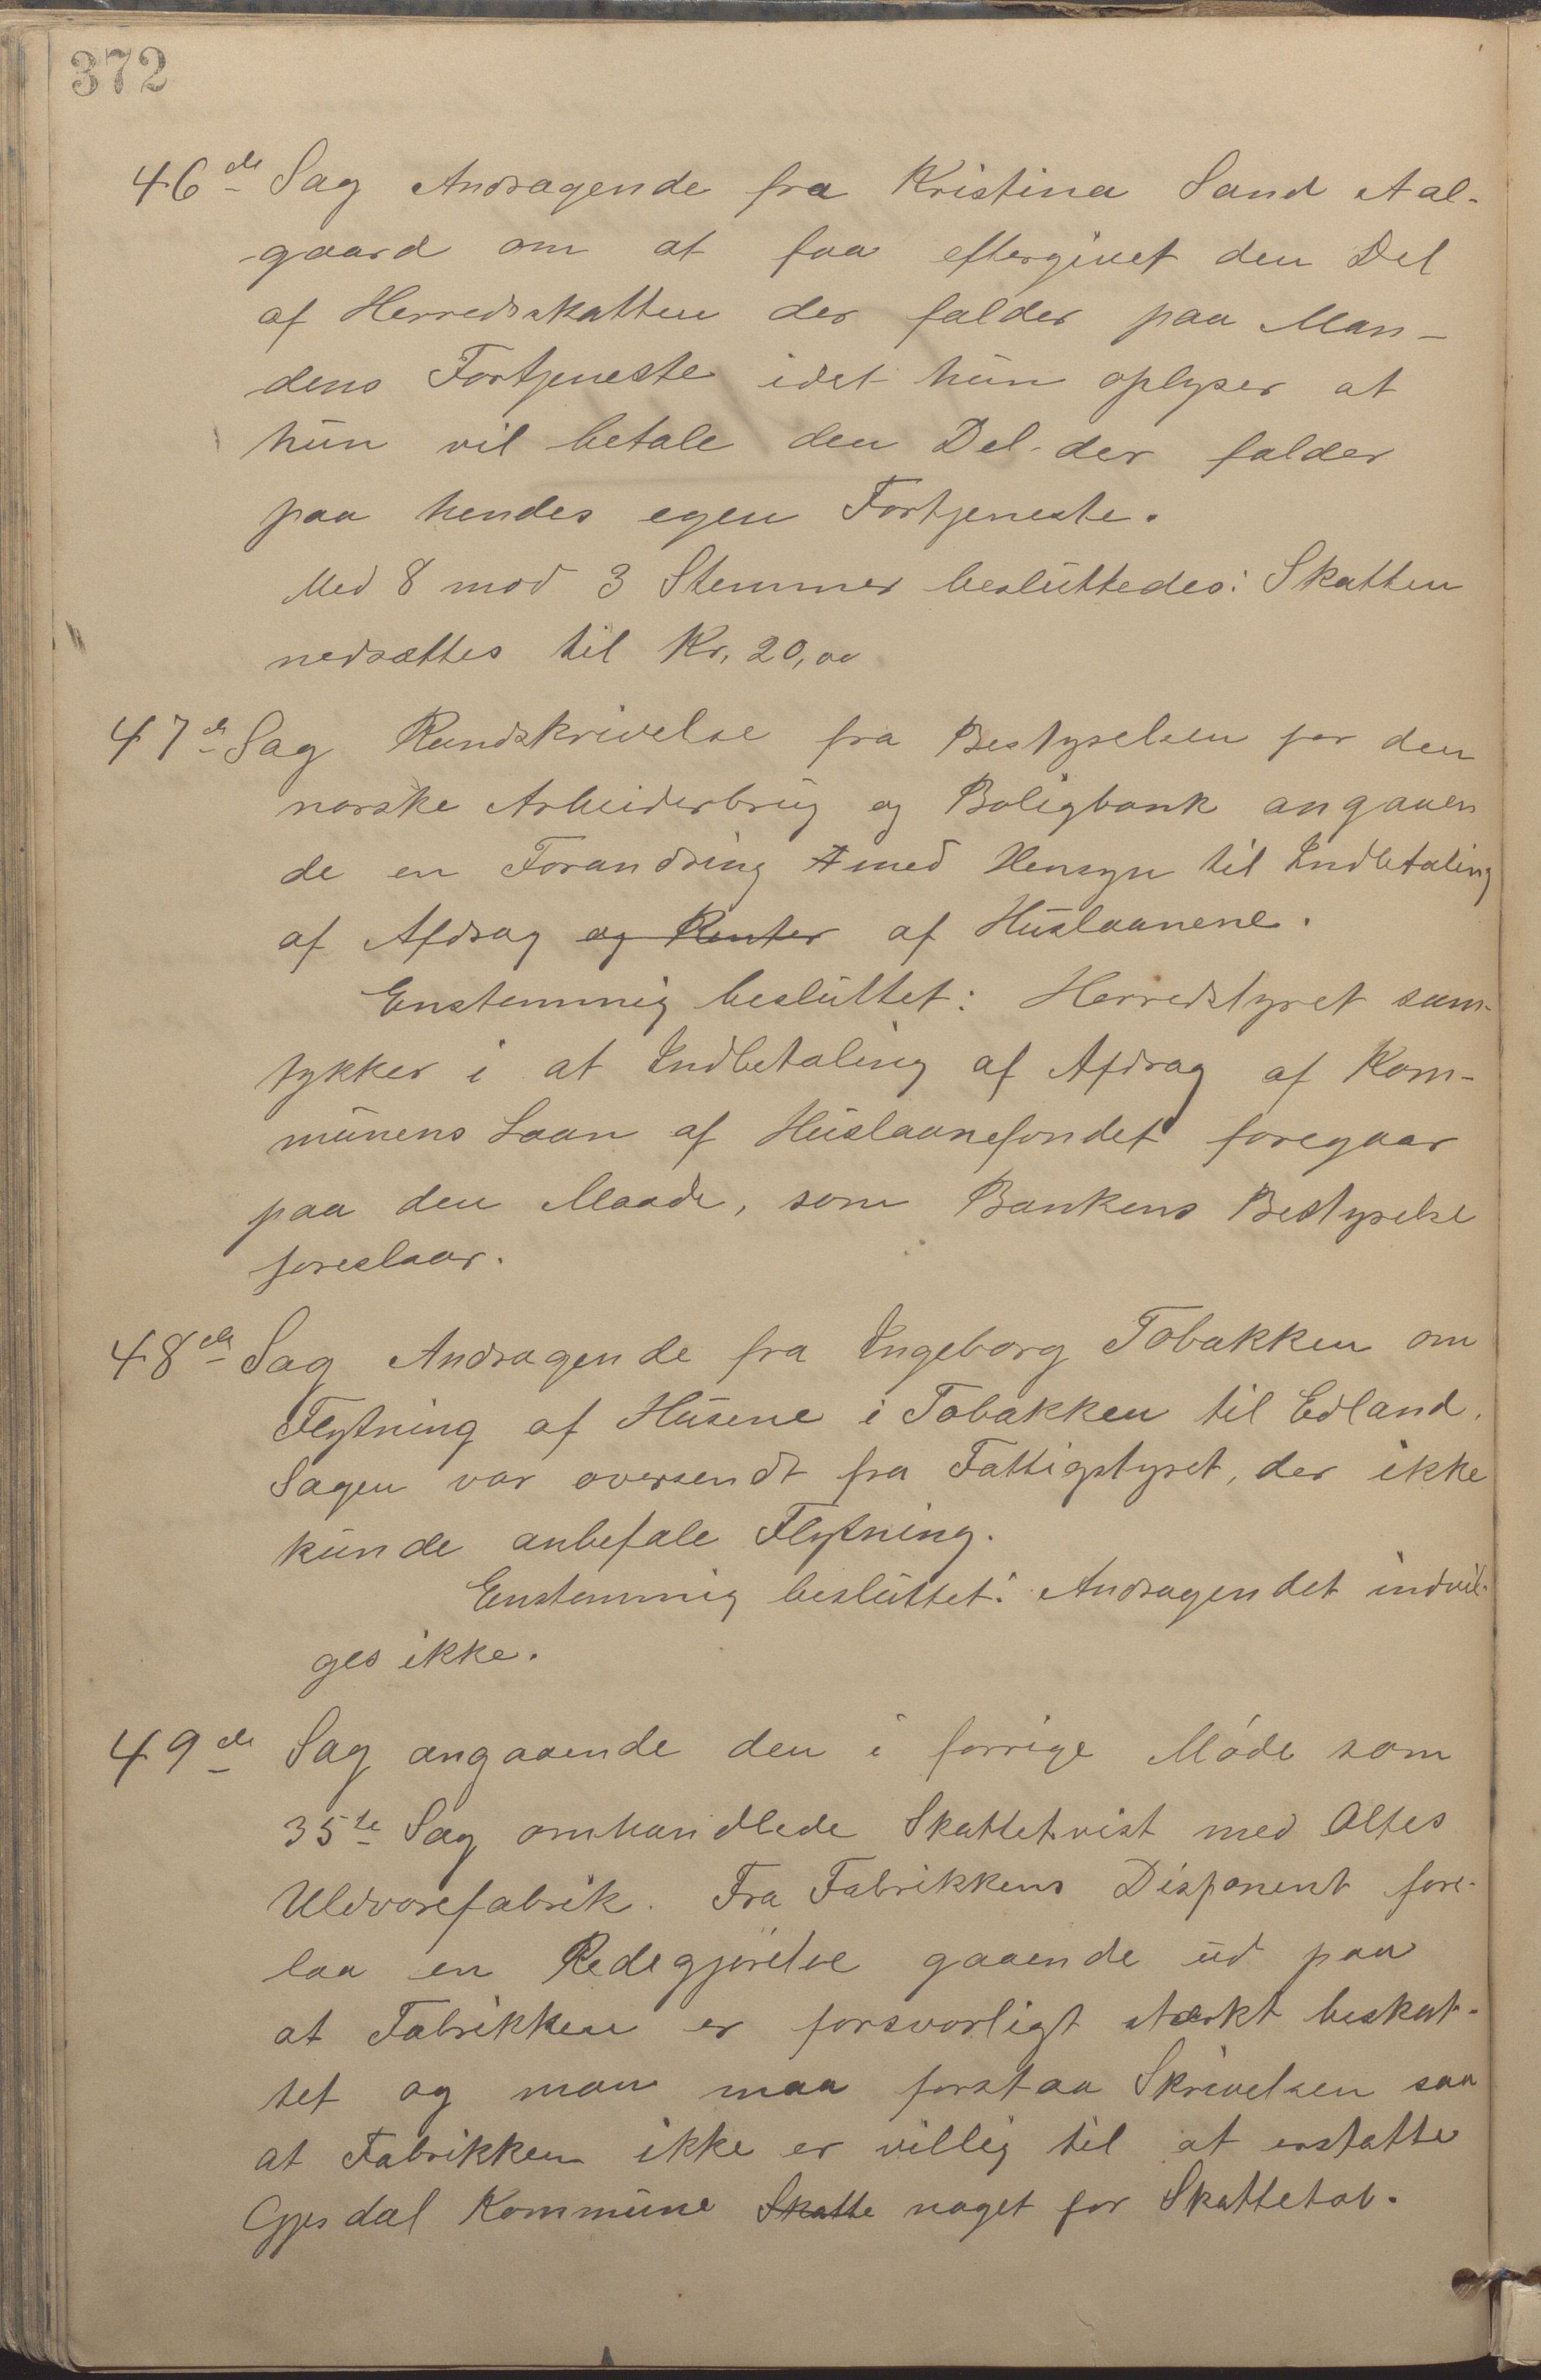 372
46de Sag Andragende fra Kristina Sand Aal-
-gaard om at faa eftergivet den Del
af Herredsskatten der falder paa Man-
dens Fortjeneste idet hun oplyser at
hun vil betale den Del der falder
paa hendes egen Fortjeneste.
Med 8 mod 3 Stemmer besluttedes: Skatten
nedsættes til Kr. 20,00
47de Sag Rundskrivelse fra Bestyrelsen for den
norske Arbeiderbrug og Boligbank angaaen
de en Forandring med Hensyn til Indbetaling
af Afdrag og Renter af Huslaanene.
Enstemmig besluttet: Herredstyret sam-
tykker i at Indbetaling af Afdrag af Kom-
munens Laan af Huslaanefondet foregaar
paa den Maade, som Bankens Bestyrelse
foreslaar.
48de Sag Andragende fra Ingeborg Tobakken om
Flytning af Husene i Tobakken til Edland.
Sagen var oversendt fra Fattigstyret, der ikke
kunde anbefale Flytning.
Enstemmig besluttet: Andragendet indvil-
ges ikke.
49de Sag angaaende den i forrige Møde som
35te Sag omhandlede Skattetvist med Oltes
Uldvarefabrik. Fra Fabrikkens Disponent fore-
laa en Redegjørelse gaaende ud paa
at Fabrikken er forsvarligt stærkt beskat-
tet og man maa forstaa Skrivelsen saa
at Fabrikken ikke er villig til at erstatte
Gjesdal Kommune Skatte noget for Skattetab.